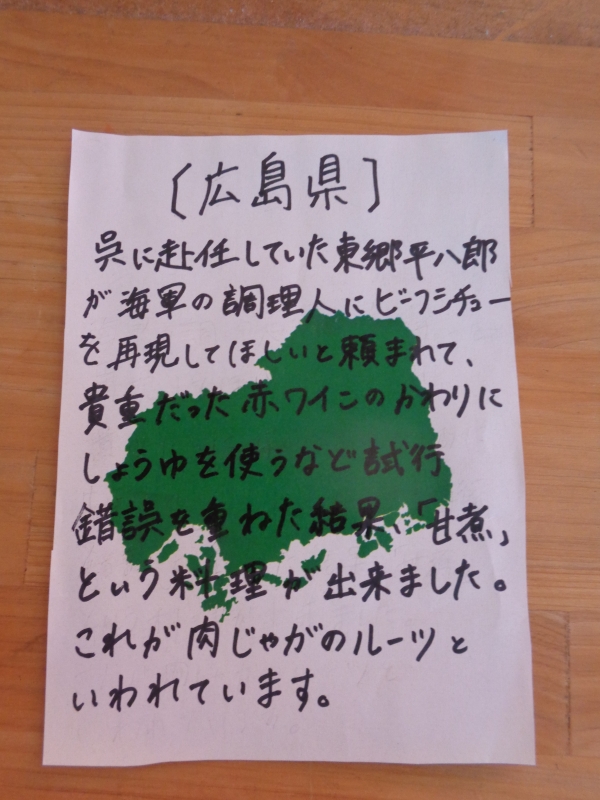 〔広島県〕
呉に赴任していた東郷平八郎
が海軍の調理人にビーフシチュー
を再現してほしいと頼まれて、
貴重だった赤ワインのかわりに
しょうゆを使うなど試行
錯誤を重ねた結果、「甘煮」
という料理が出来ました。
これが肉じゃがのルーツと
いわれています。